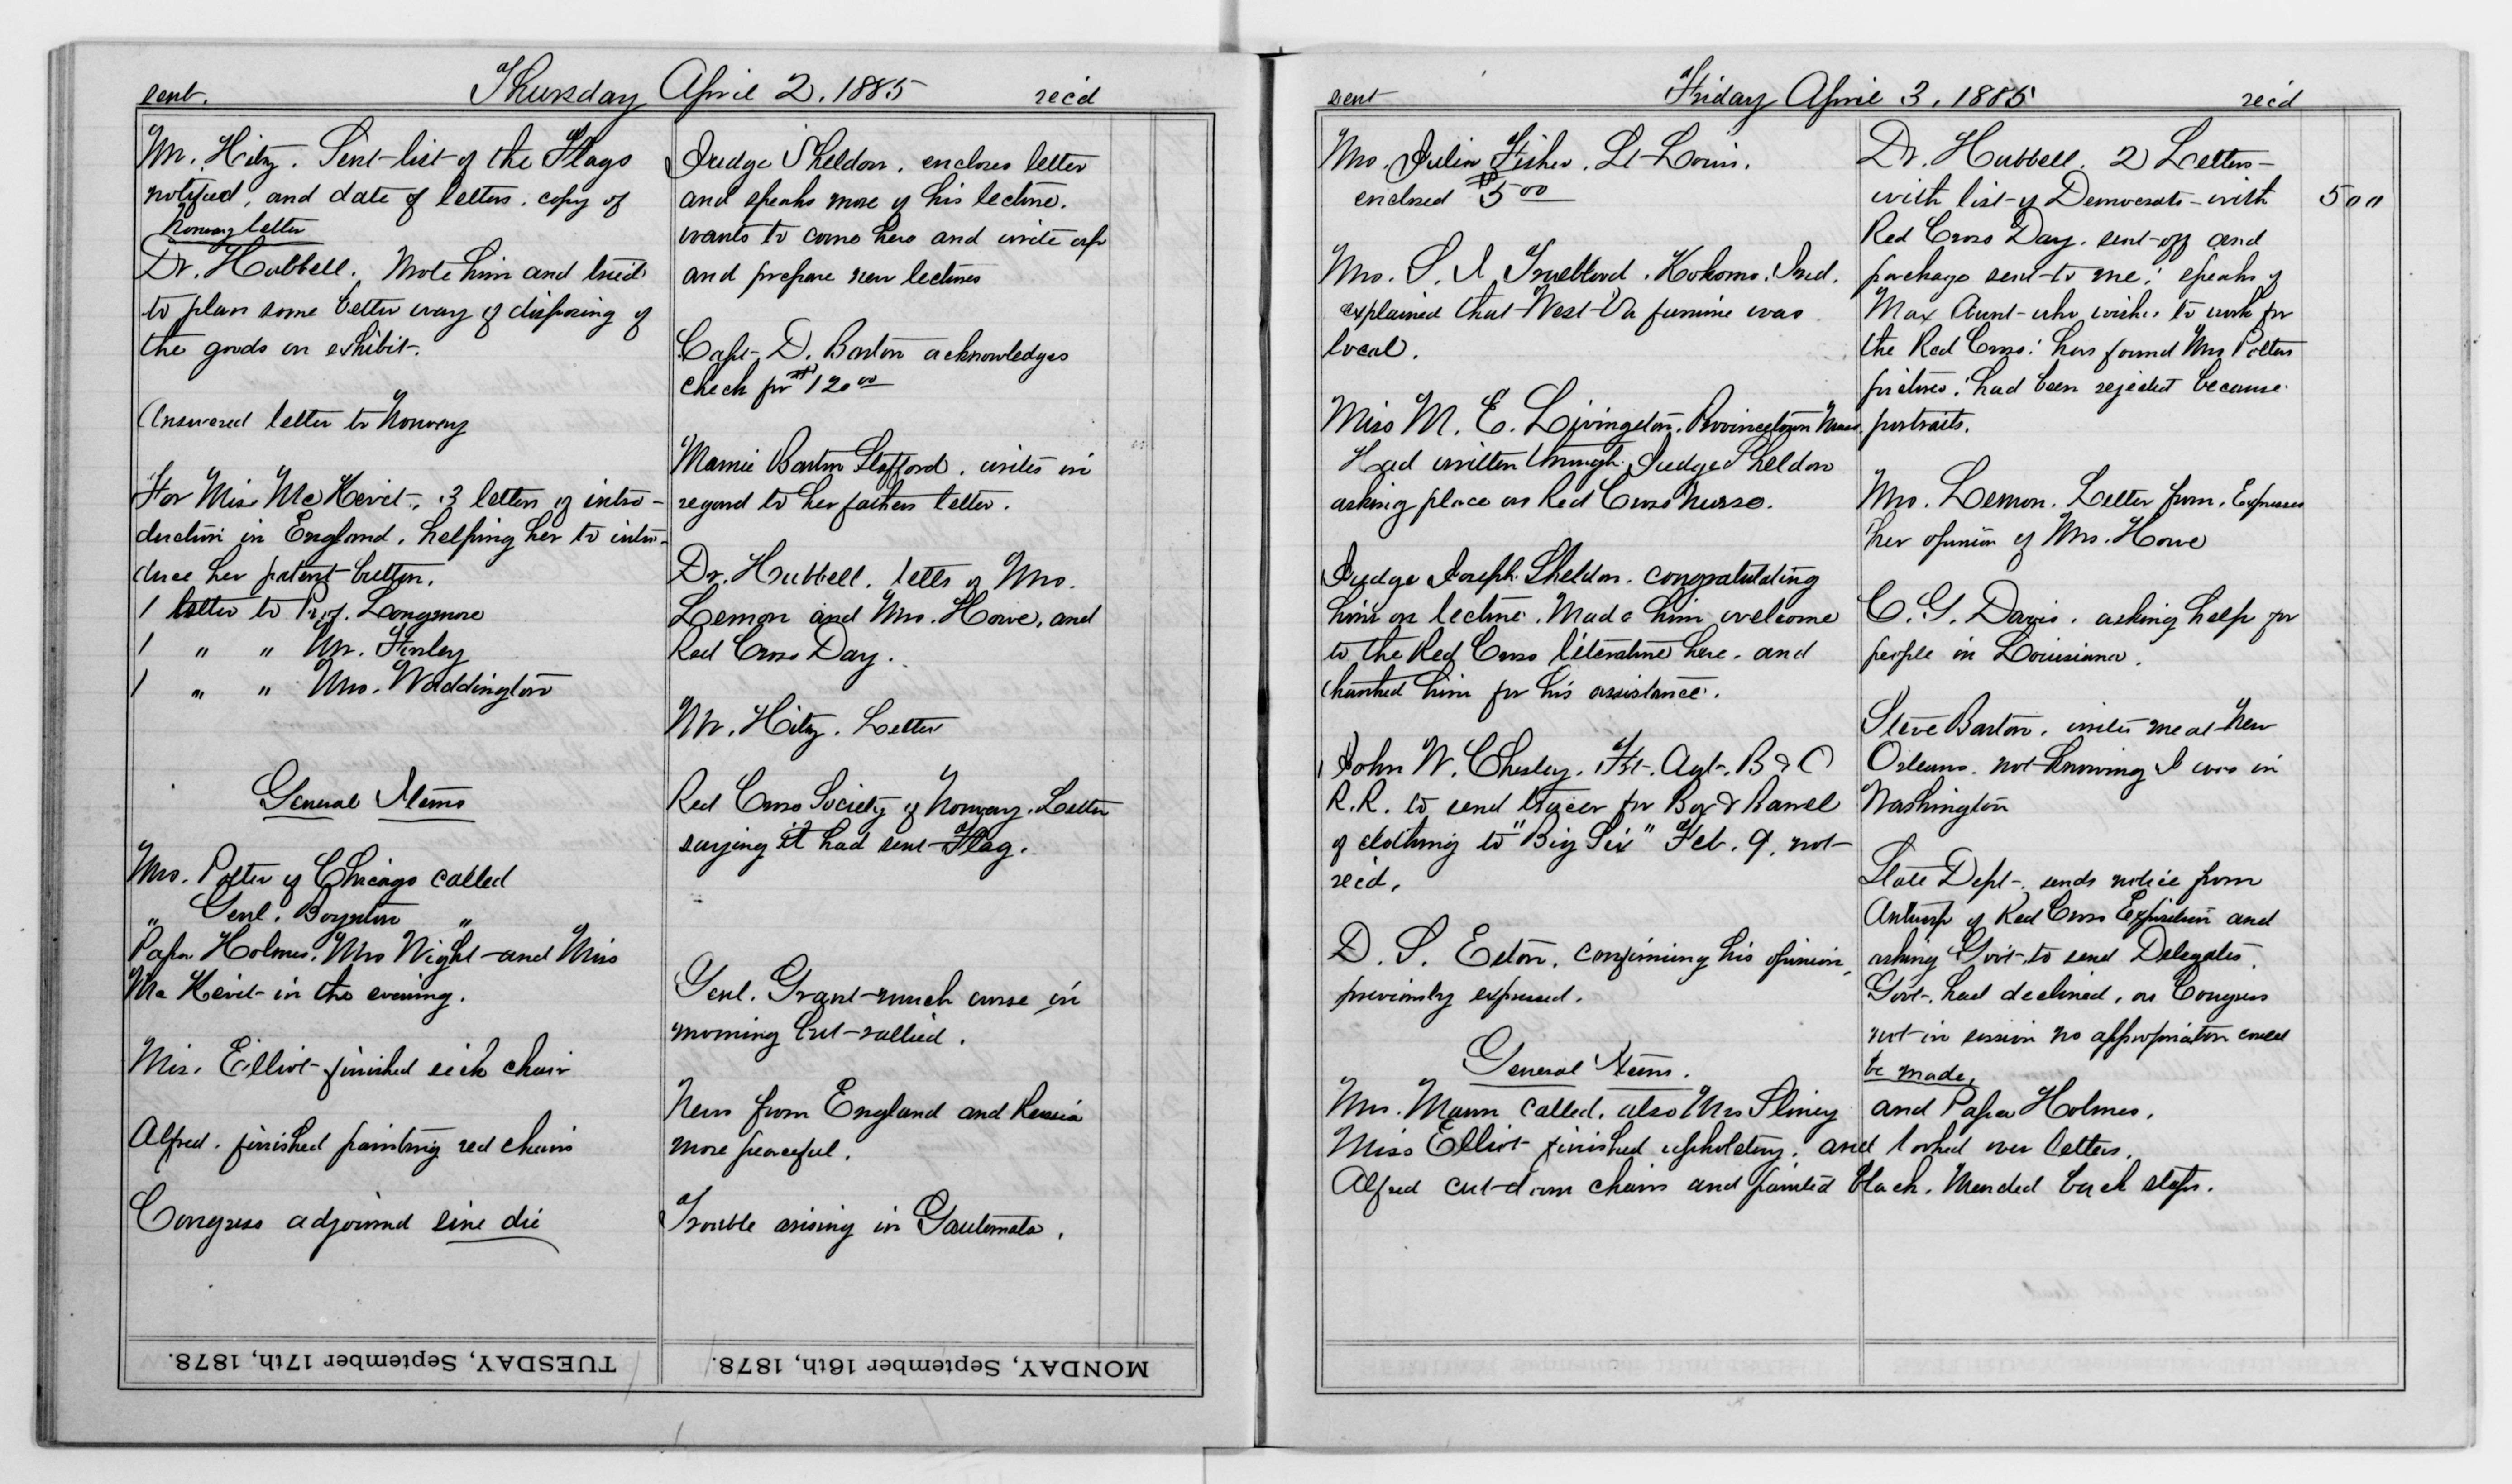 sent. Thursday April 2. 1885 rec'd
Mr. Hitz. Sent list of the Flags
notified, and date of letters. copy of
Norway letter
Dr. Hubbell. Wrote him and tried
to plan some better way of disposing of
the goods on exhibit.
Answered letter to Norway
For Miss McKevit, 3 letters of intro-
duction in England, helping her to intro-
duce her patent button.
1 letter to Prof. Longmore
1 " " Mr. Finley
1 " " Mrs. Waddington
General Items
Mrs. Potter of Chicago called
" Genl. Boynton "
Papa Holmes, Mrs Wight and Miss
McKevit in the evening.
Miss Elliot finished sick chair
Alfred. finished painting red chairs
Congress adjourned sine die
Judge Sheldon. encloses letter
and speaks more of his lecture.
wants to come here and write up
and prepare new lectures
Capt. D. Barton acknowledges
check for $120 00
Mamie Barton Stafford. writes in
regard to her fathers letter.
Dr. Hubbell. tells of Mrs.
Lemon and Mrs. Howe, and
Red Cross Day.
Mr. Hitz. Letter
Red Cross Society of Norway. Letter
saying it had sent Flag.
Genl. Grant much worse in
morning but rallied.
News from England and Russia
more peaceful.
Trouble arising in Gautemala.
TUESDAY, September 17th, 1878.
MONDAY, September 16th, 1878.
sent Friday April 3. 1885 rec'd
Mrs. Julia Fisher. St Louis.
enclosed $5 00
Mrs. S. A. Trueblood. Kokomo. Ind.
explained that West Va famine was
local.
Miss M. E. Livingston. Provincetown Mass.
Had written through Judge Sheldon
asking place as Red Cross nurse.
Judge Joseph Sheldon. congratulating
him on lecture. Made him welcome
to the Red Cross literature here. and
thanked him for his assistance.
John W. Chesley. Frt. Agt. B & O
R.R. to send tracer for Box & Barrel
of clothing to "Big Six" Feb. 9. not
rec'd.
D. S. Eston. confirming his opinion,
previously expressed.
Dr. Hubbell. 2 Letters
with list of Democrats with 5 00
Red Cross Day. sent off and
package sent to me: speaks of
Max Aunt who wishes to work for
the Red Cross: has found Mrs Potters
pictures: had been rejected because
portraits.
Mrs. Lemon. Letter from. Expresses
her opinion of Mrs. Howe
C. G. Davis. asking help for
people in Louisiana.
Steve Barton. writes me at New
Orleans. not knowing I was in
Washington
State Dept. sends notice from
Antwerp of Red Cross Exposition and
asking Govt. to send Delegates.
Govt. had declined, as Congress
not in session no appropriation could
be made.
General Items.
Mrs. Mann called. also Mrs Pliney and Papa Holmes.
Miss Elliot finished upholstery. and looked over letters.
Alfred cut down chairs and painted black. Mended back steps.